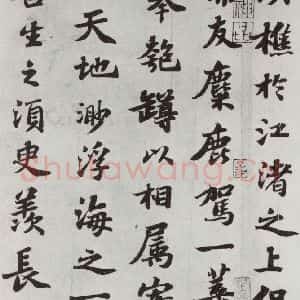 樵於江渚之上侶
友麋鹿駕一葉
匏罇以相屬寄
天地渺浮海之一
吾生之須臾羨長
Shufawang.cn